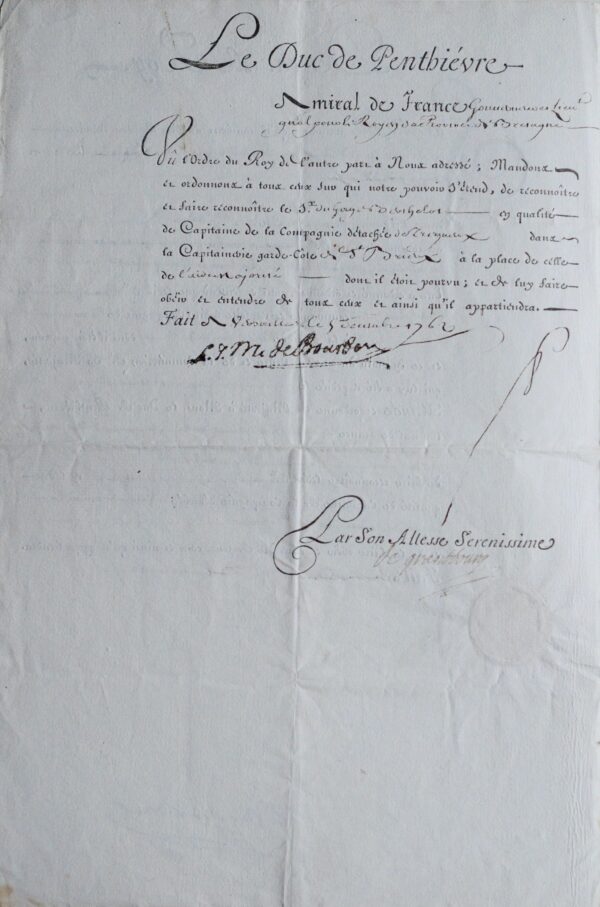 Le Duc de Penthiévre
Amiral de France Gouverneur et Lieut.
gnal pour le Roy en sa Province de Bretagne
Vû l'Ordre du Roy de l'autre part à Nous adressé ; Mandons
et ordonnons à tous ceux sur qui notre pouvoir s'étend, de reconnoître
et faire reconnoître le Sr. Berthelot en qualité
de Capitaine de la Compagnie détachée de Tregueux dans
la Capitainerie garde-Côte de St. Brieux à la place de celle
de l'aide Majorité dont il étoit pourvû ; et de luy faire
obéir et entendre de tous ceux et ainsi qu'il appartiendra.
Fait à Versailles le 1762
L. J. M. de Bourbon
Par Son Altesse Serenissime